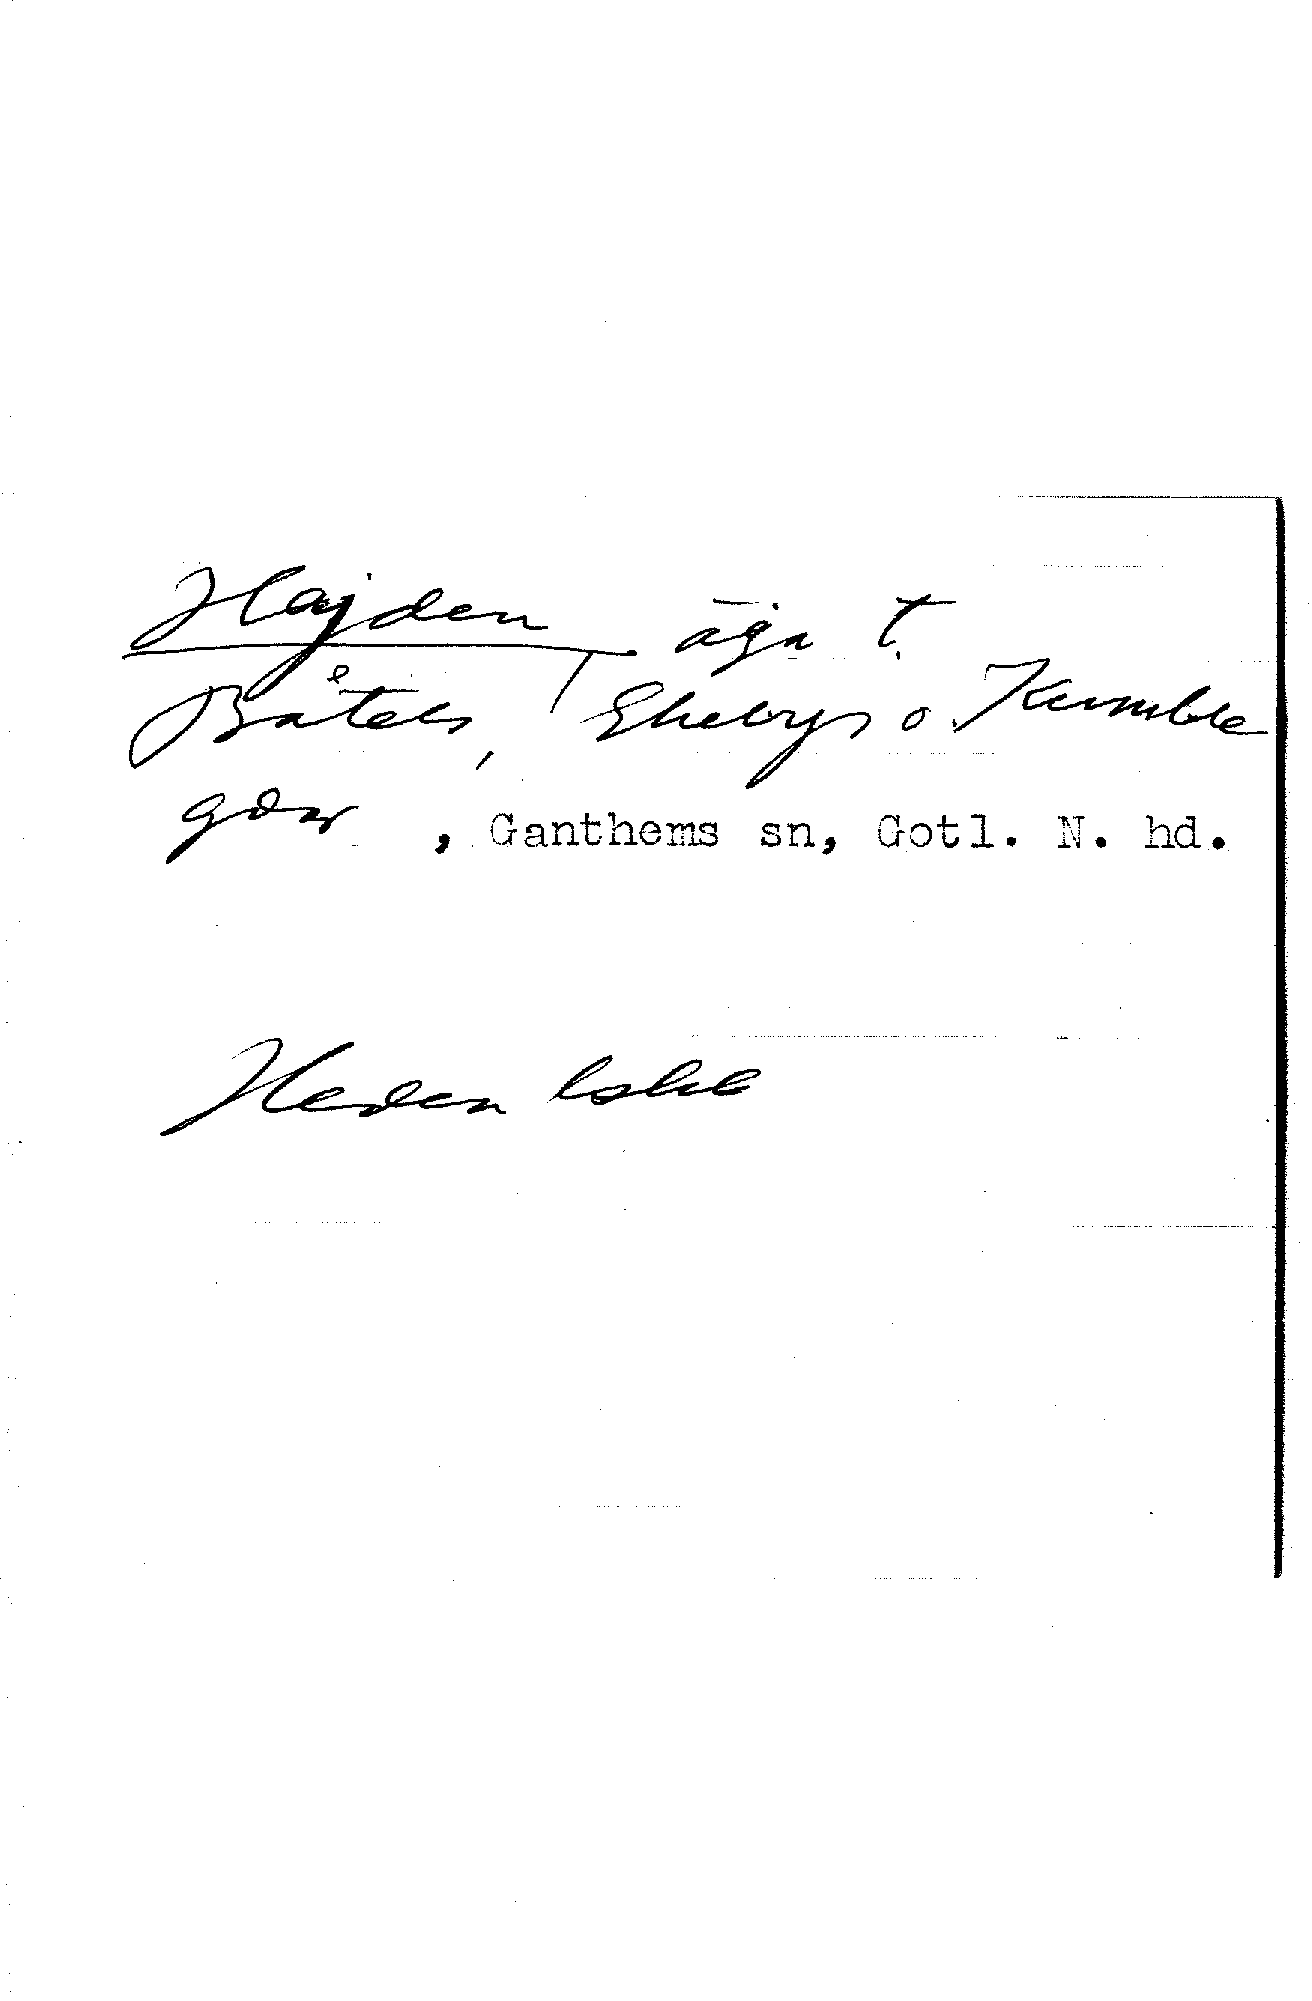 Hajden, äga t.
Båtels, Ekebys o. Kumble
gdr , Ganthems sn, Gotl. N. hd.
Heden